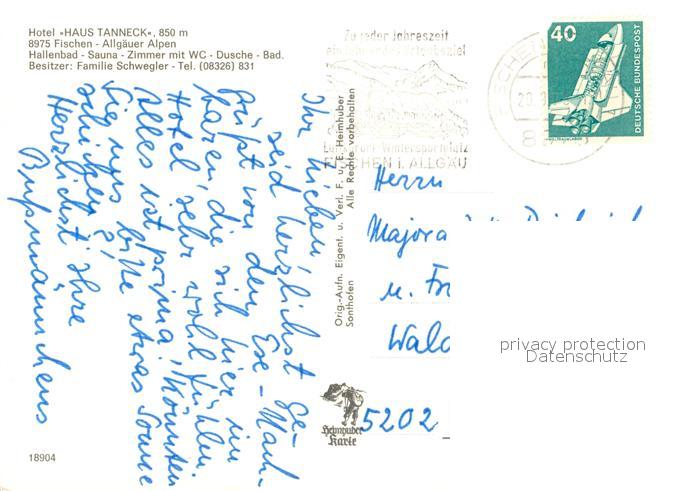 Hotel »HAUS TANNECK«, 850 m
8975 Fischen - Allgäuer Alpen
Hallenbad - Sauna - Zimmer mit WC - Dusche - Bad.
Besitzer: Familie Schwegler - Tel. (08326) 831
Ihr Lieben
seid herzlichst ge-
grüßt von den
die sich hier im
Hotel sehr wohl fühlen
Alles ist prima, könnten
Sie uns bitte etwas Sonne
schicken?
Herzlichst Ihre
18904
Orig.-Aufn. Eigent. u. Verl. F. u. E. Heimhuber
Sonthofen
Alle Rechte vorbehalten
Zu jeder Jahreszeit
ein lohnendes Urlaubsziel
Luftkurort - Wintersportplatz
FISCHEN i. ALLGÄU
FISCHEN
40
DEUTSCHE BUNDESPOST
WELTRAUMLABOR
Herrn
Majora
u.
Wald
5202
Heimhuber
Karte
privacy protection
Datenschutz